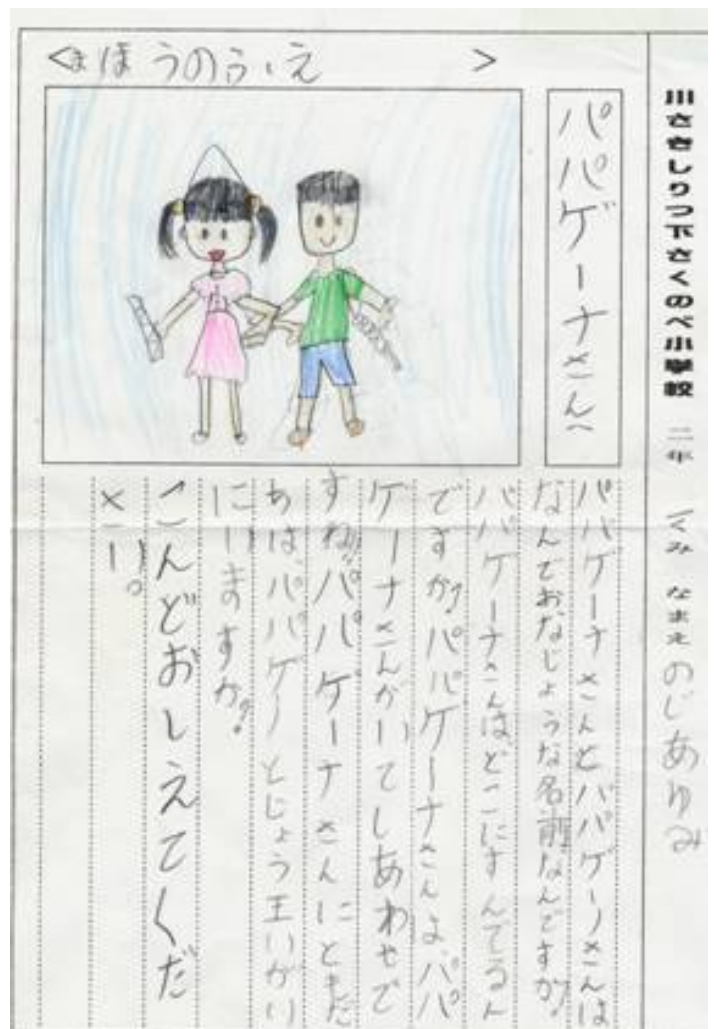 川さきしりつ下さくのべ小学校 二年 1くみ なまえ のじあゆみ
<まほうのふえ>
パパゲーナさんへ
パパゲーナさんとパパゲーノさんは
なんでおなじょうな名前なんですか?
パパゲーナさんは、どこにすんでるん
ですか?パパゲーナさんは、パパ
ゲーナさんがいてしあわせで
すね!!パパゲーナさんにともだ
ちは、パパゲーノとじょう王いがい
にいますか?
こんどおしえてくだ
さい。